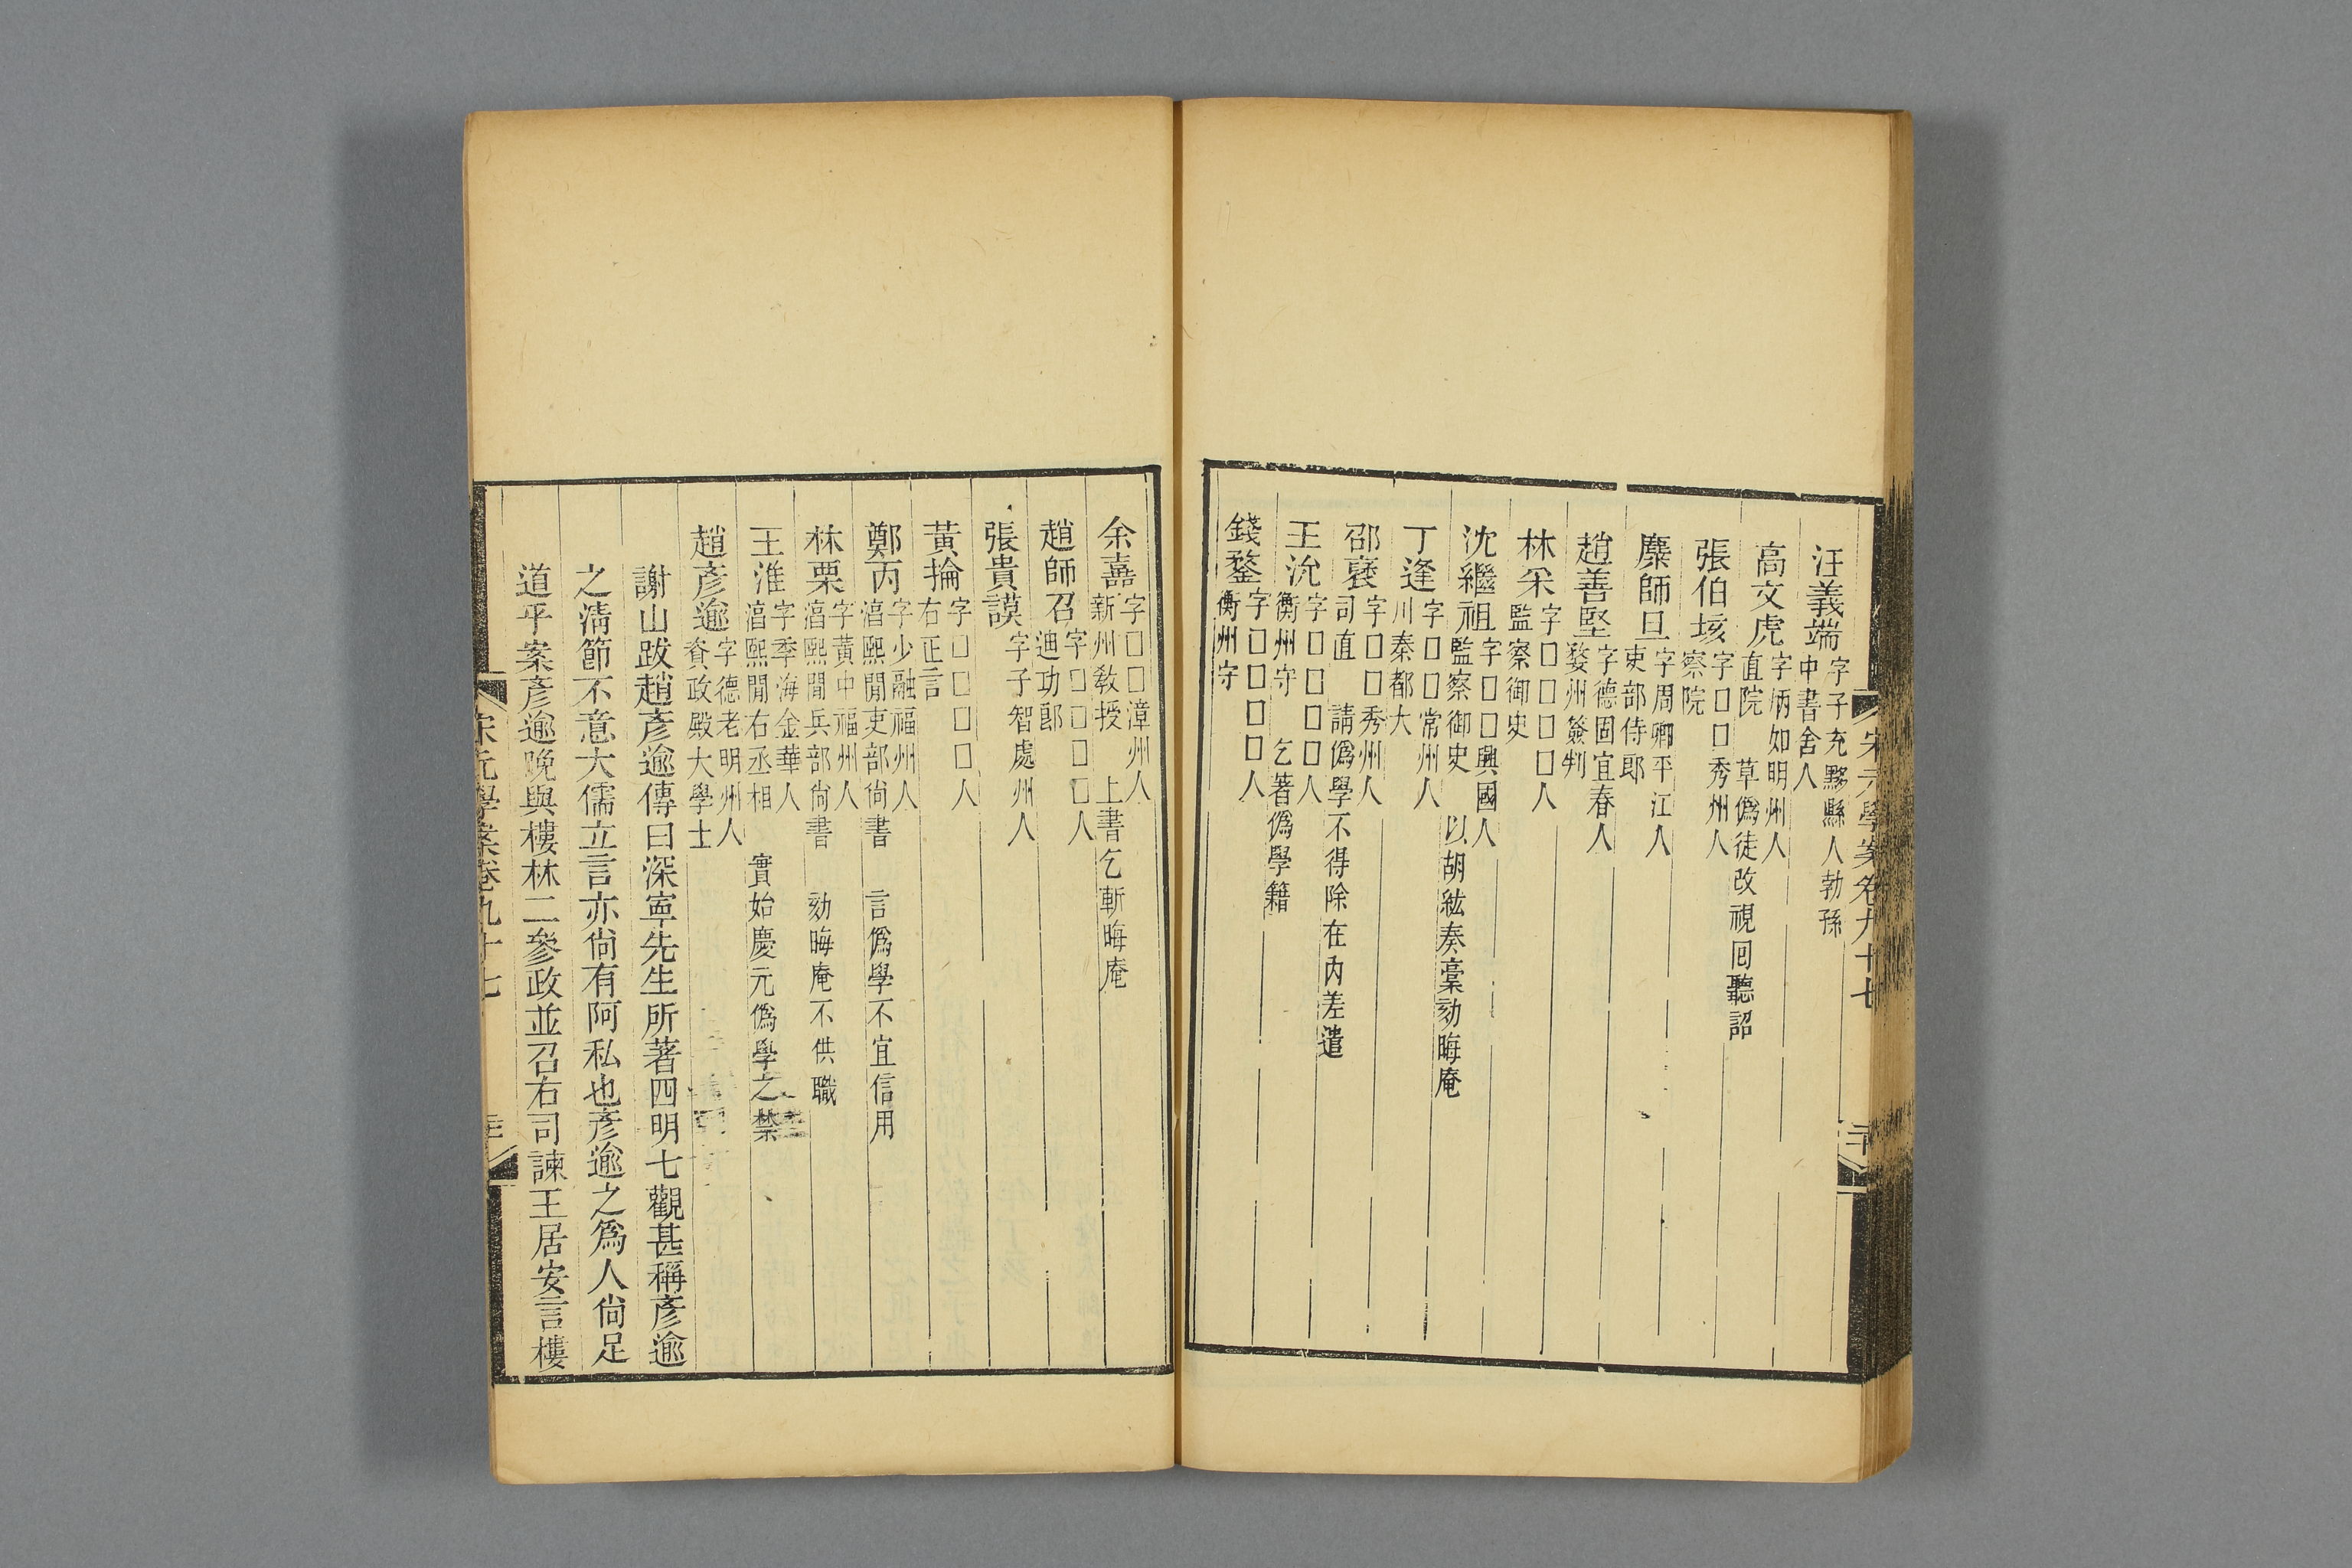 汪義端字子充黟縣人勃孫中書舍人
高文虎字炳如明州人直院 草僞徒改視回聽詔
張伯垓字□□秀州人察院
麋師旦字周卿平江人吏部侍郎
趙善堅字德固宜春人婺州簽判
林采字□□□□人監察御史
沈繼祖字□□興國人監察御史 以胡紘奏稾劾晦庵
丁逢字□□常州人川秦都大
邵褎字□□秀州人司直 請僞學不得除在內差遣
王沇字□□□□人衢州守 乞著僞學籍
錢鍪字□□□□人衡州守
余嚞字□□漳州人新州教授 上書乞斬晦庵
趙師召字□□□□人迪功郎
張貴謨字子智處州人
黃掄字□□□□人右正言
鄭丙字少融福州人湻熙閒吏部尙書 言僞學不宜信用
林栗字黃中福州人湻熙閒兵部尙書 劾晦庵不供職
王淮字季海金華人湻熙閒右丞相 實始慶元僞學之禁
趙彥逾字德老明州人資政殿大學士
謝山跋趙彥逾傳曰深寧先生所著四明七觀甚稱彥逾
之淸節不意大儒立言亦尙有阿私也彥逾之爲人尙足
道乎案彥逾晚與樓林二參政並召右司諫王居安言樓
宋元學案卷九十七